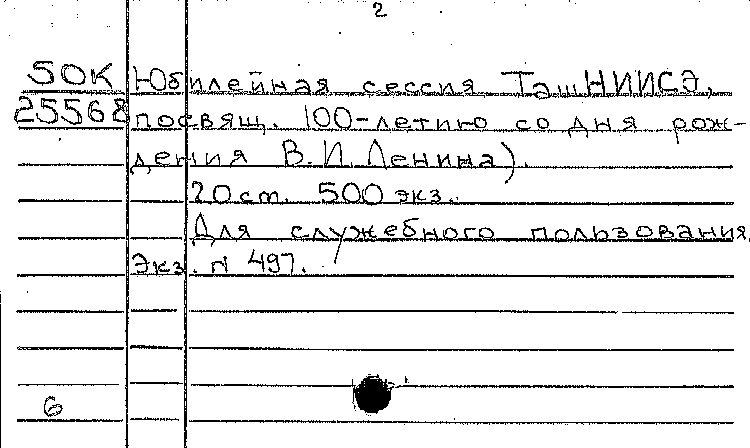 2
50К Юбилейная сессия ТашНИИСЭ,
25568 посвящ. 100-летию со дня рож-
дения В.И.Ленина).
20 см. 500 экз.
Для служебного пользования.
Экз. N 497.
6